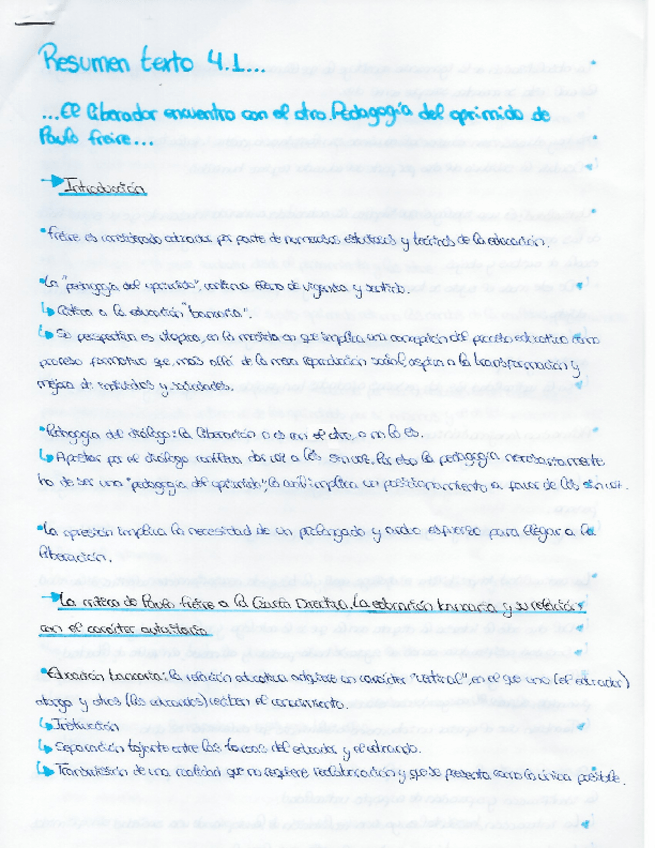 Resumen texto 4.1...
...El liberador encuentro con el otro. Pedagogía del oprimido de
Paulo Freire...
Introducción
Freire es considerado educador por parte de numerosos estudiosos y teóricos de la educación.
La "pedagogía del oprimido", continua lleno de vigencia y sentido.
Crítica a la educación "bancaria".
Su perspectiva es utópica, en la medida en que implica una concepción del proceso educativo como
proceso formativo que, más allá de la mera reproducción social, aspira a la transformación y
mejora de individuos y sociedades.
Pedagogía del diálogo: la liberación o es con el otro, o no lo es.
Apostar por el diálogo conlleva dar voz a los sin voz. Por eso la pedagogía necesariamente
ha de ser una "pedagogía del oprimido", la cual implica un posicionamiento a favor de los sin voz.
La opresión implica la necesidad de un prolongado y arduo esfuerzo para llegar a la
liberación.
La crítica de Paulo Freire a la Directiva. La educación bancaria y su relación
con el carácter autoritario
Educación bancaria: la relación educativa adquiere un carácter "vertical", en el que uno (el educador)
otorga y otros (los educandos) reciben el conocimiento.
Instrucción
Separación tajante entre las tareas del educador y el educando.
Transmisión de una realidad que no requiere reelaboración y que se presenta como la única posible.